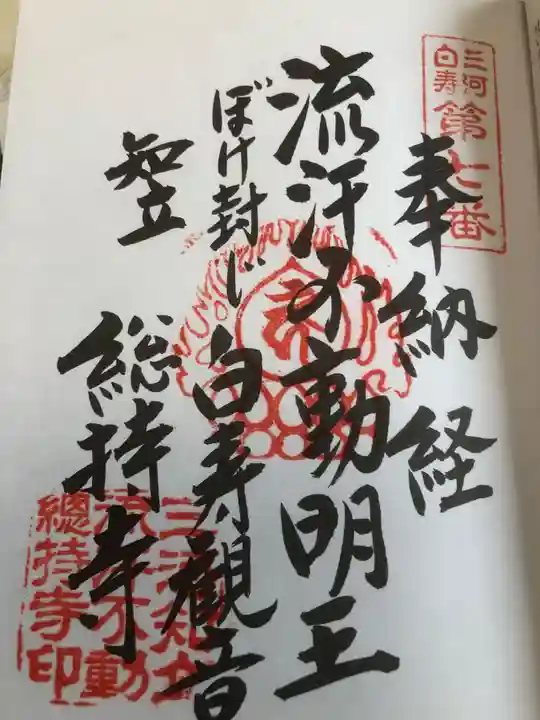 三河
白寿
第七番
奉納経
流汗不動明王
ぼけ封じ白寿観音
智立
総持寺
總持寺印